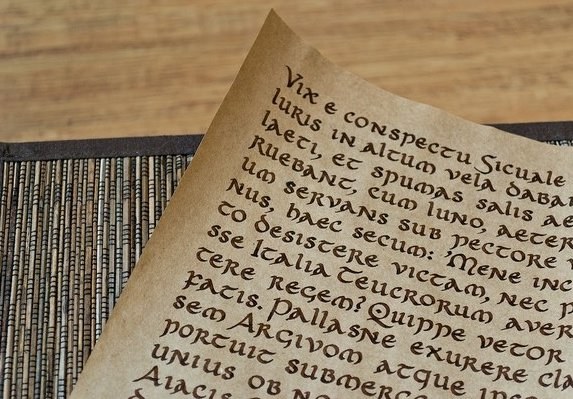 Vix e conspectu Sicuale
luris in altum vela dabar
laeti, et spumas salis ae
ruebant, cum Iuno, aeter
um servans sub pectore v
nus, haec secum: 'Mene inc
to desistere victam, nec p
sse Italia Teucrorum aver
tere regem? Quippe vetor
fatis. Pallasne exurere cla
sem Argivom atque ips
portuit submerge
unius ob no
Aiacis